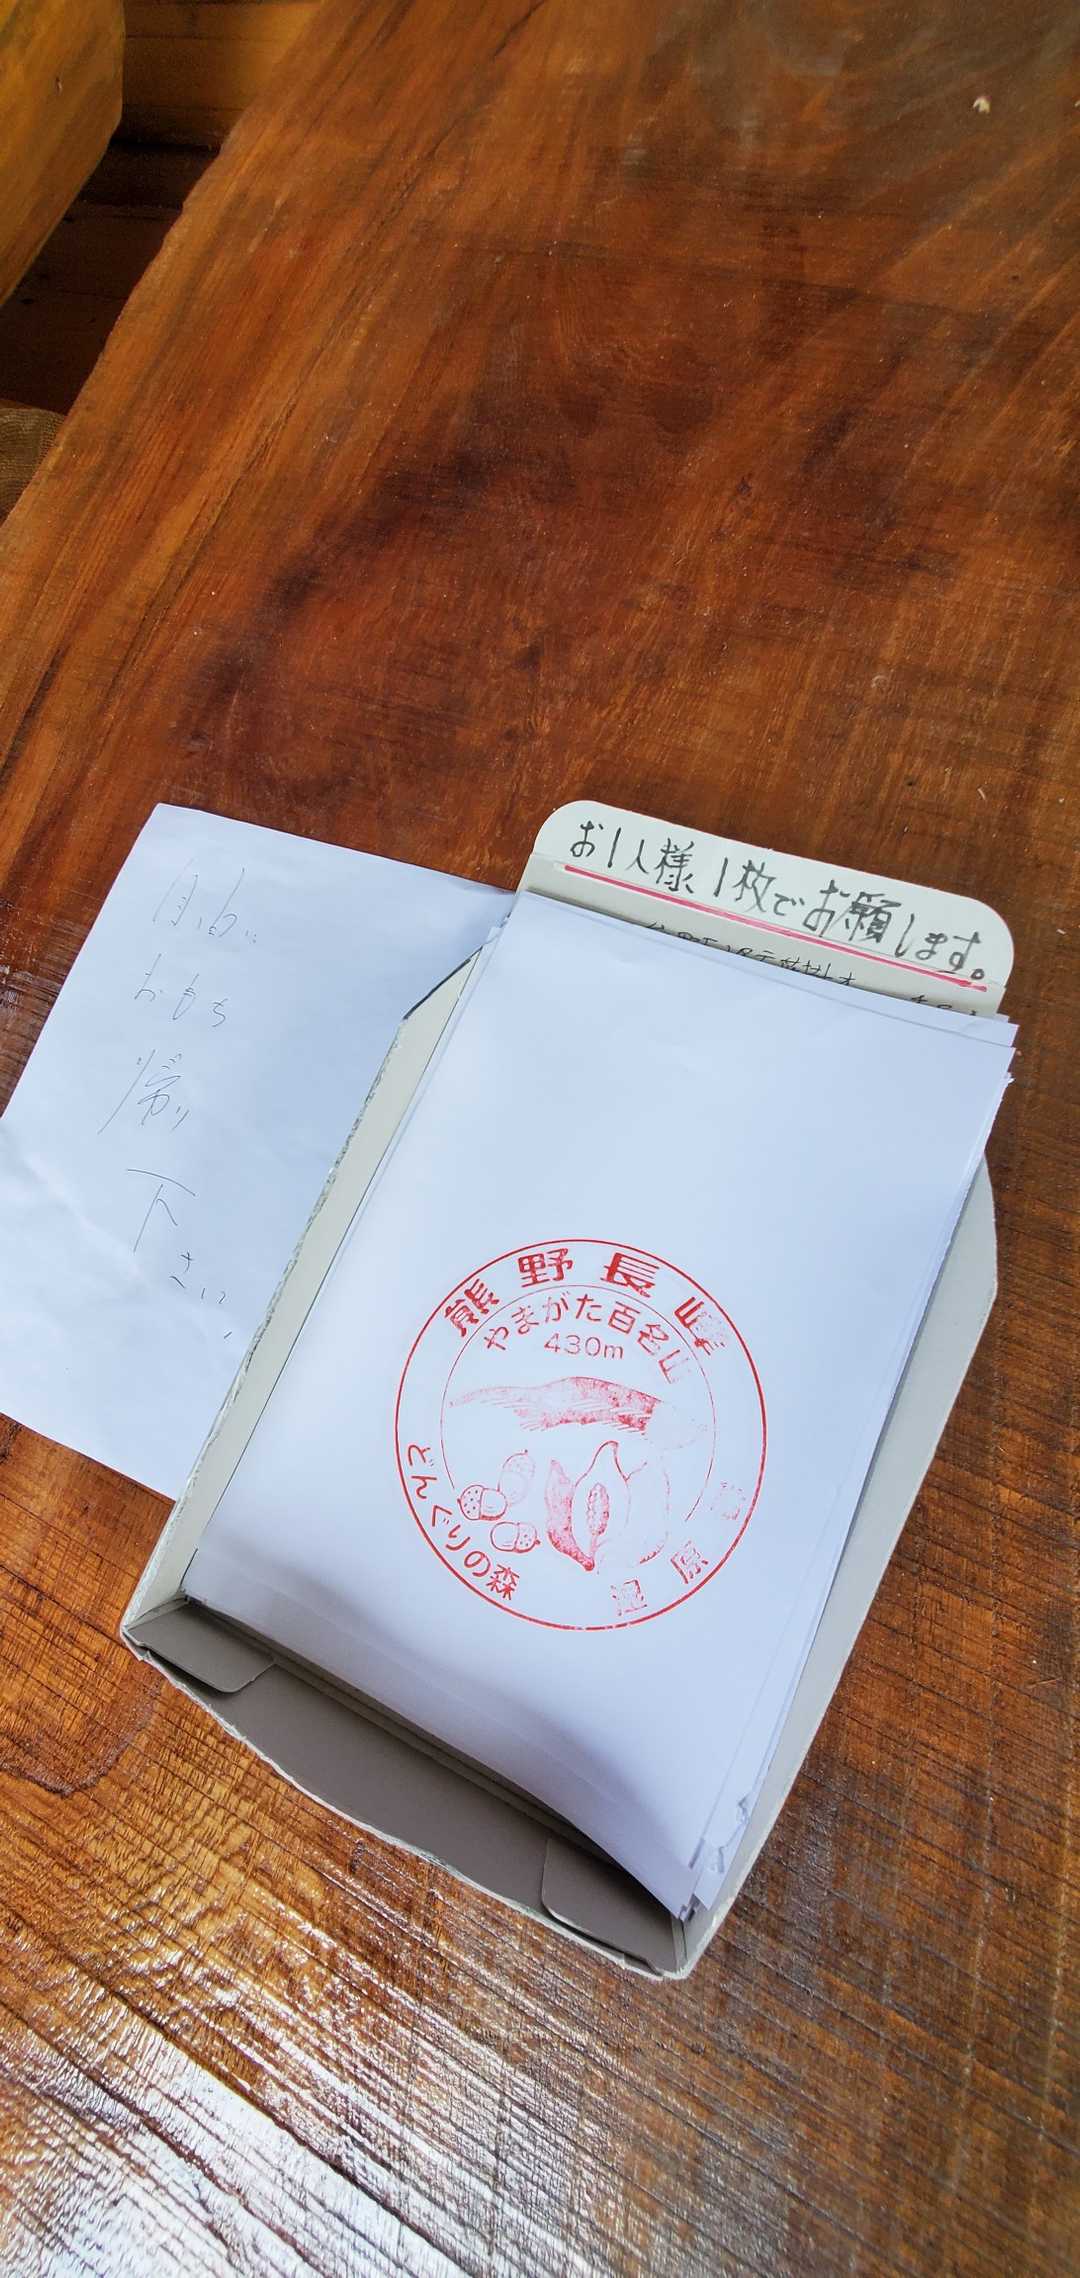 お1人様1枚でお願します。
自由に
おもち
帰り
下さい
熊野長峰
やまがた百名山
430m
どんぐりの森